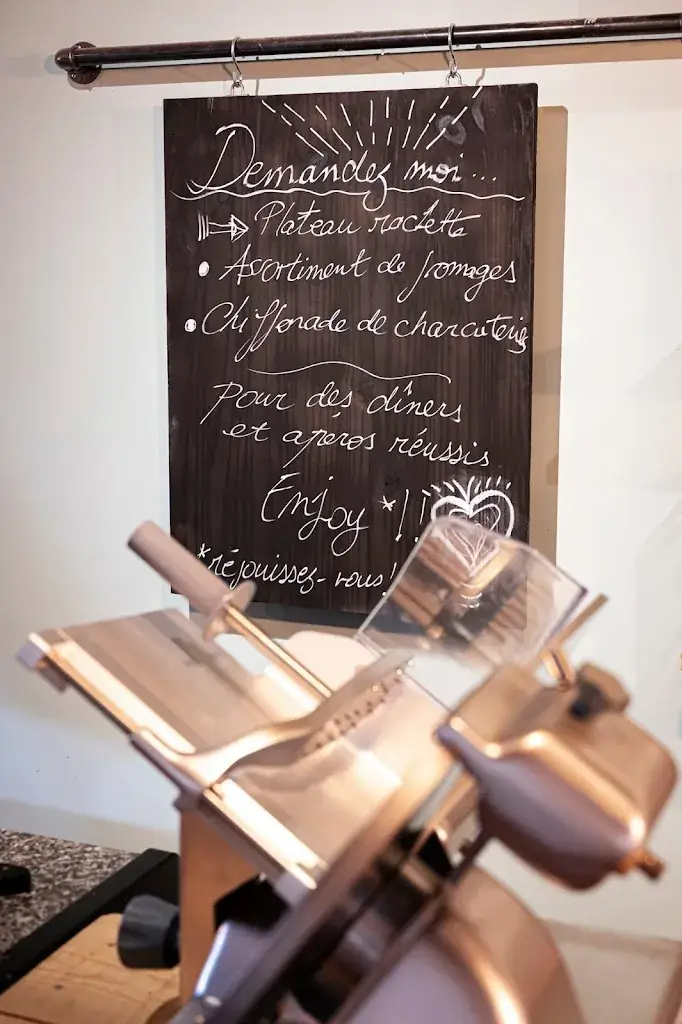 Demandez moi...
Plateau raclette
• Assortiment de fromages
• Chiffonade de charcuterie
pour des dîners
et apéros réussis
Enjoy *!!
*réjouissez-vous!